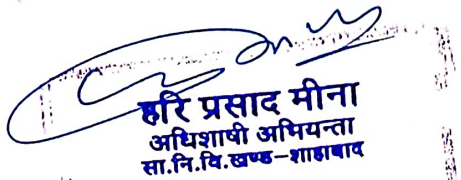 हरि प्रसाद मीना
अधिशाषी अभियन्ता
सा.नि.वि.खण्ड-शाहाबाद